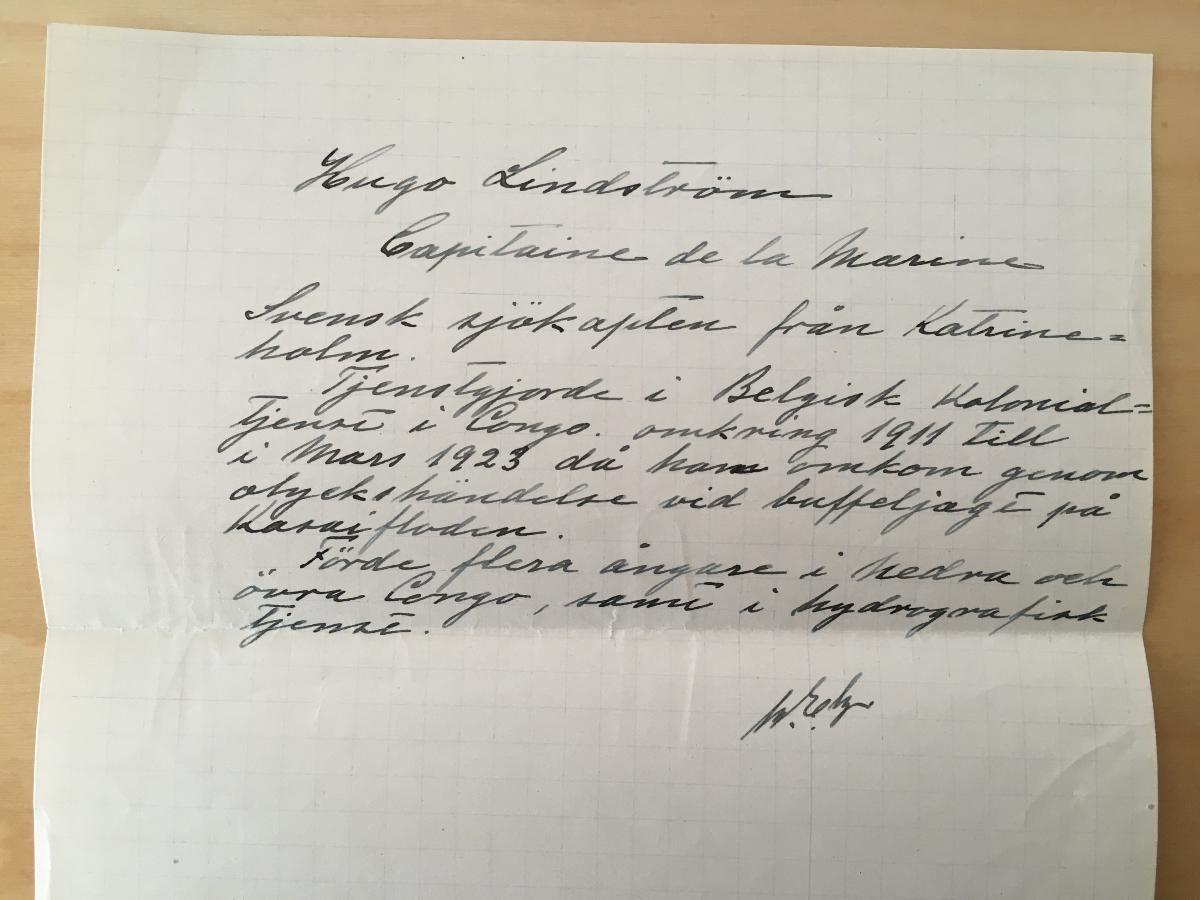 Hugo Lindström
Capitaine de la Marine
Svensk sjökapten från Katrine=
holm.
Tjenstgjorde i Belgisk Kolonial=
tjenst i Congo. omkring 1911 till
i Mars 1923 då han omkom genom
olyckshändelse vid buffeljagt på
Kasaifloden.
Förde flera ångare i nedra och
övra Congo, samt i hydrografisk
tjenst.